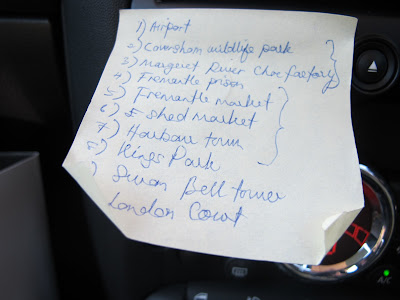 1) Airport
2) Caversham wildlife park
3) Margaret River Choc factory
4) Fremantle prison
5) Fremantle market
6) E shed market
7) Harbour town
8) Kings Park
) Swan Bell tower
London Court
A/C